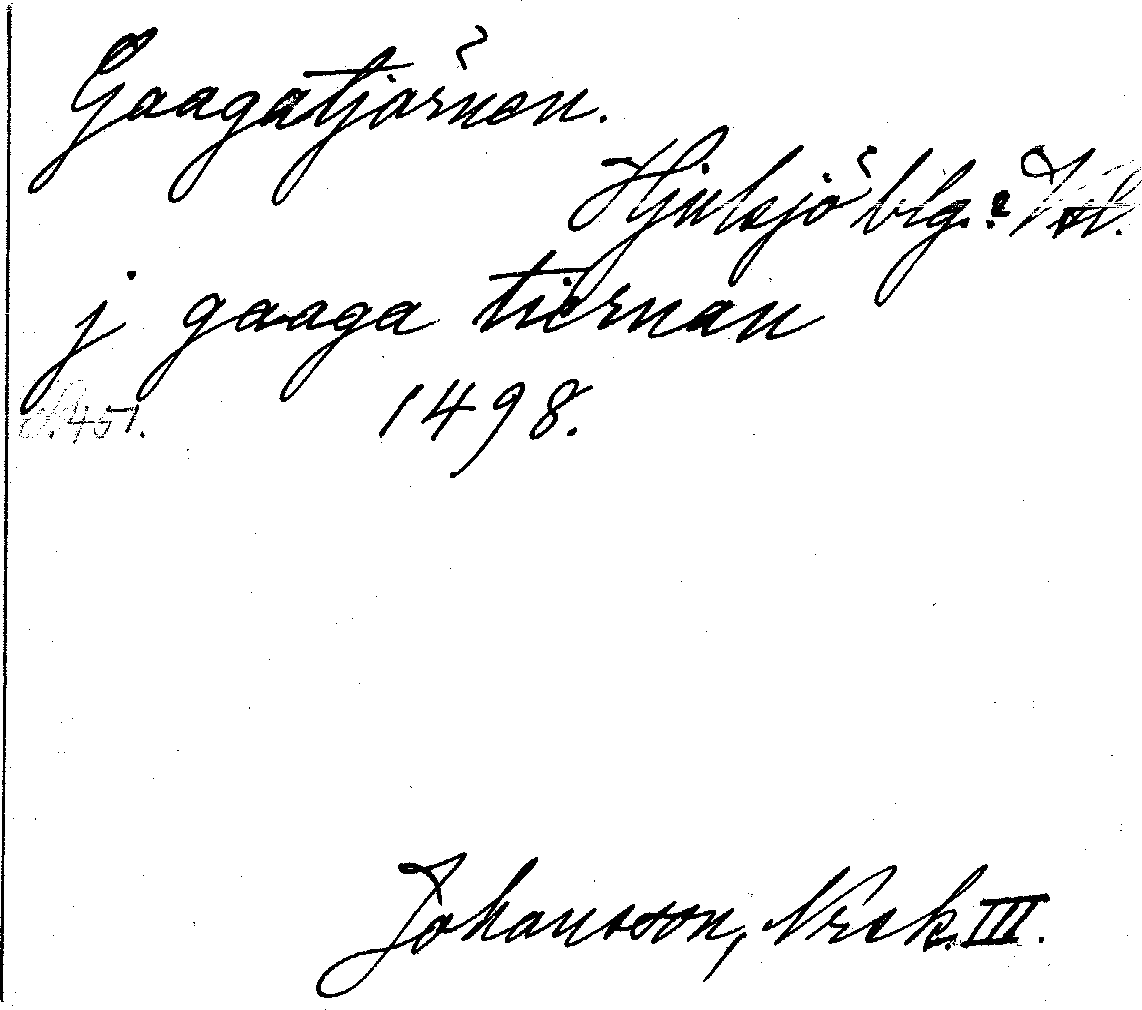 Gaagatjärnen.
Hjulsjö blg.? Vstl.
j gaaga tiernan
S. 451. 1498.
Johansson, Norsk. III.